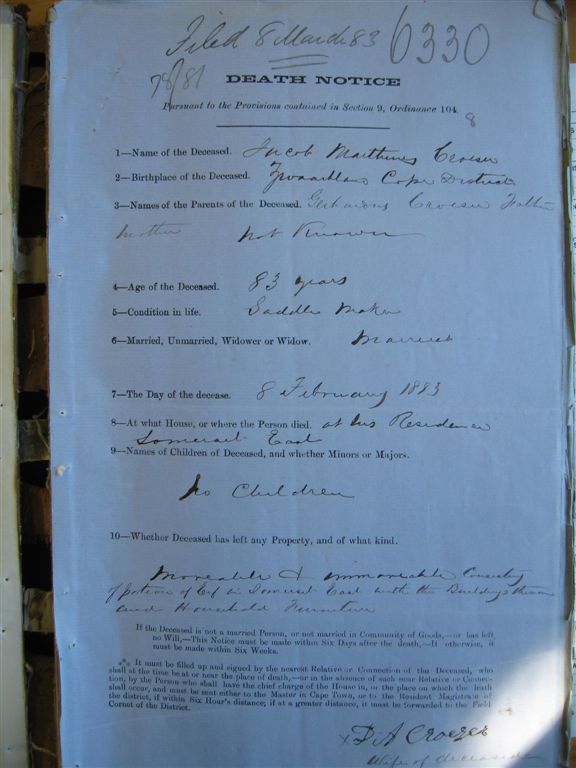 Filed 8 March 83 6330
78/81
DEATH NOTICE
Pursuant to the Provisions contained in Section 9, Ordinance 104.
8
1—Name of the Deceased. Jacob Matthews Croeser
2—Birthplace of the Deceased. Zwaartland Cape District
3—Names of the Parents of the Deceased. Croeser Father
Mother not Known
4—Age of the Deceased. 83 years
5—Condition in life. Saddle Maker
6—Married, Unmarried, Widower or Widow. Married
7—The Day of the decease. 8 February 1883
8—At what House, or where the Person died. at his Residence
Somerset East
9—Names of Children of Deceased, and whether Minors or Majors.
No Children
10—Whether Deceased has left any Property, and of what kind.
Moveable & immoveable Consisting
of portion of Erf in Somerset East with the Buildings thereon
and Household Furniture
If the Deceased is not a married Person, or not married in Community of Goods,—or has left
no Will,—This Notice must be made within Six Days after the death,—If otherwise, it
must be made within Six Weeks.
⁂ It must be filled up and signed by the nearest Relative or Connection of the Deceased, who
shall at the time be at or near the place of death,—or in the absence of such near Relative or Connec-
tion, by the Person who shall have the chief charge of the House in, or the place on which the death
shall occur, and must be sent either to the Master in Cape Town, or to the Resident Magistrate of
the district, if within Six Hour's distance; if at a greater distance, it must be forwarded to the Field
Cornet of the District.
x D A Croeser
Wife of deceased